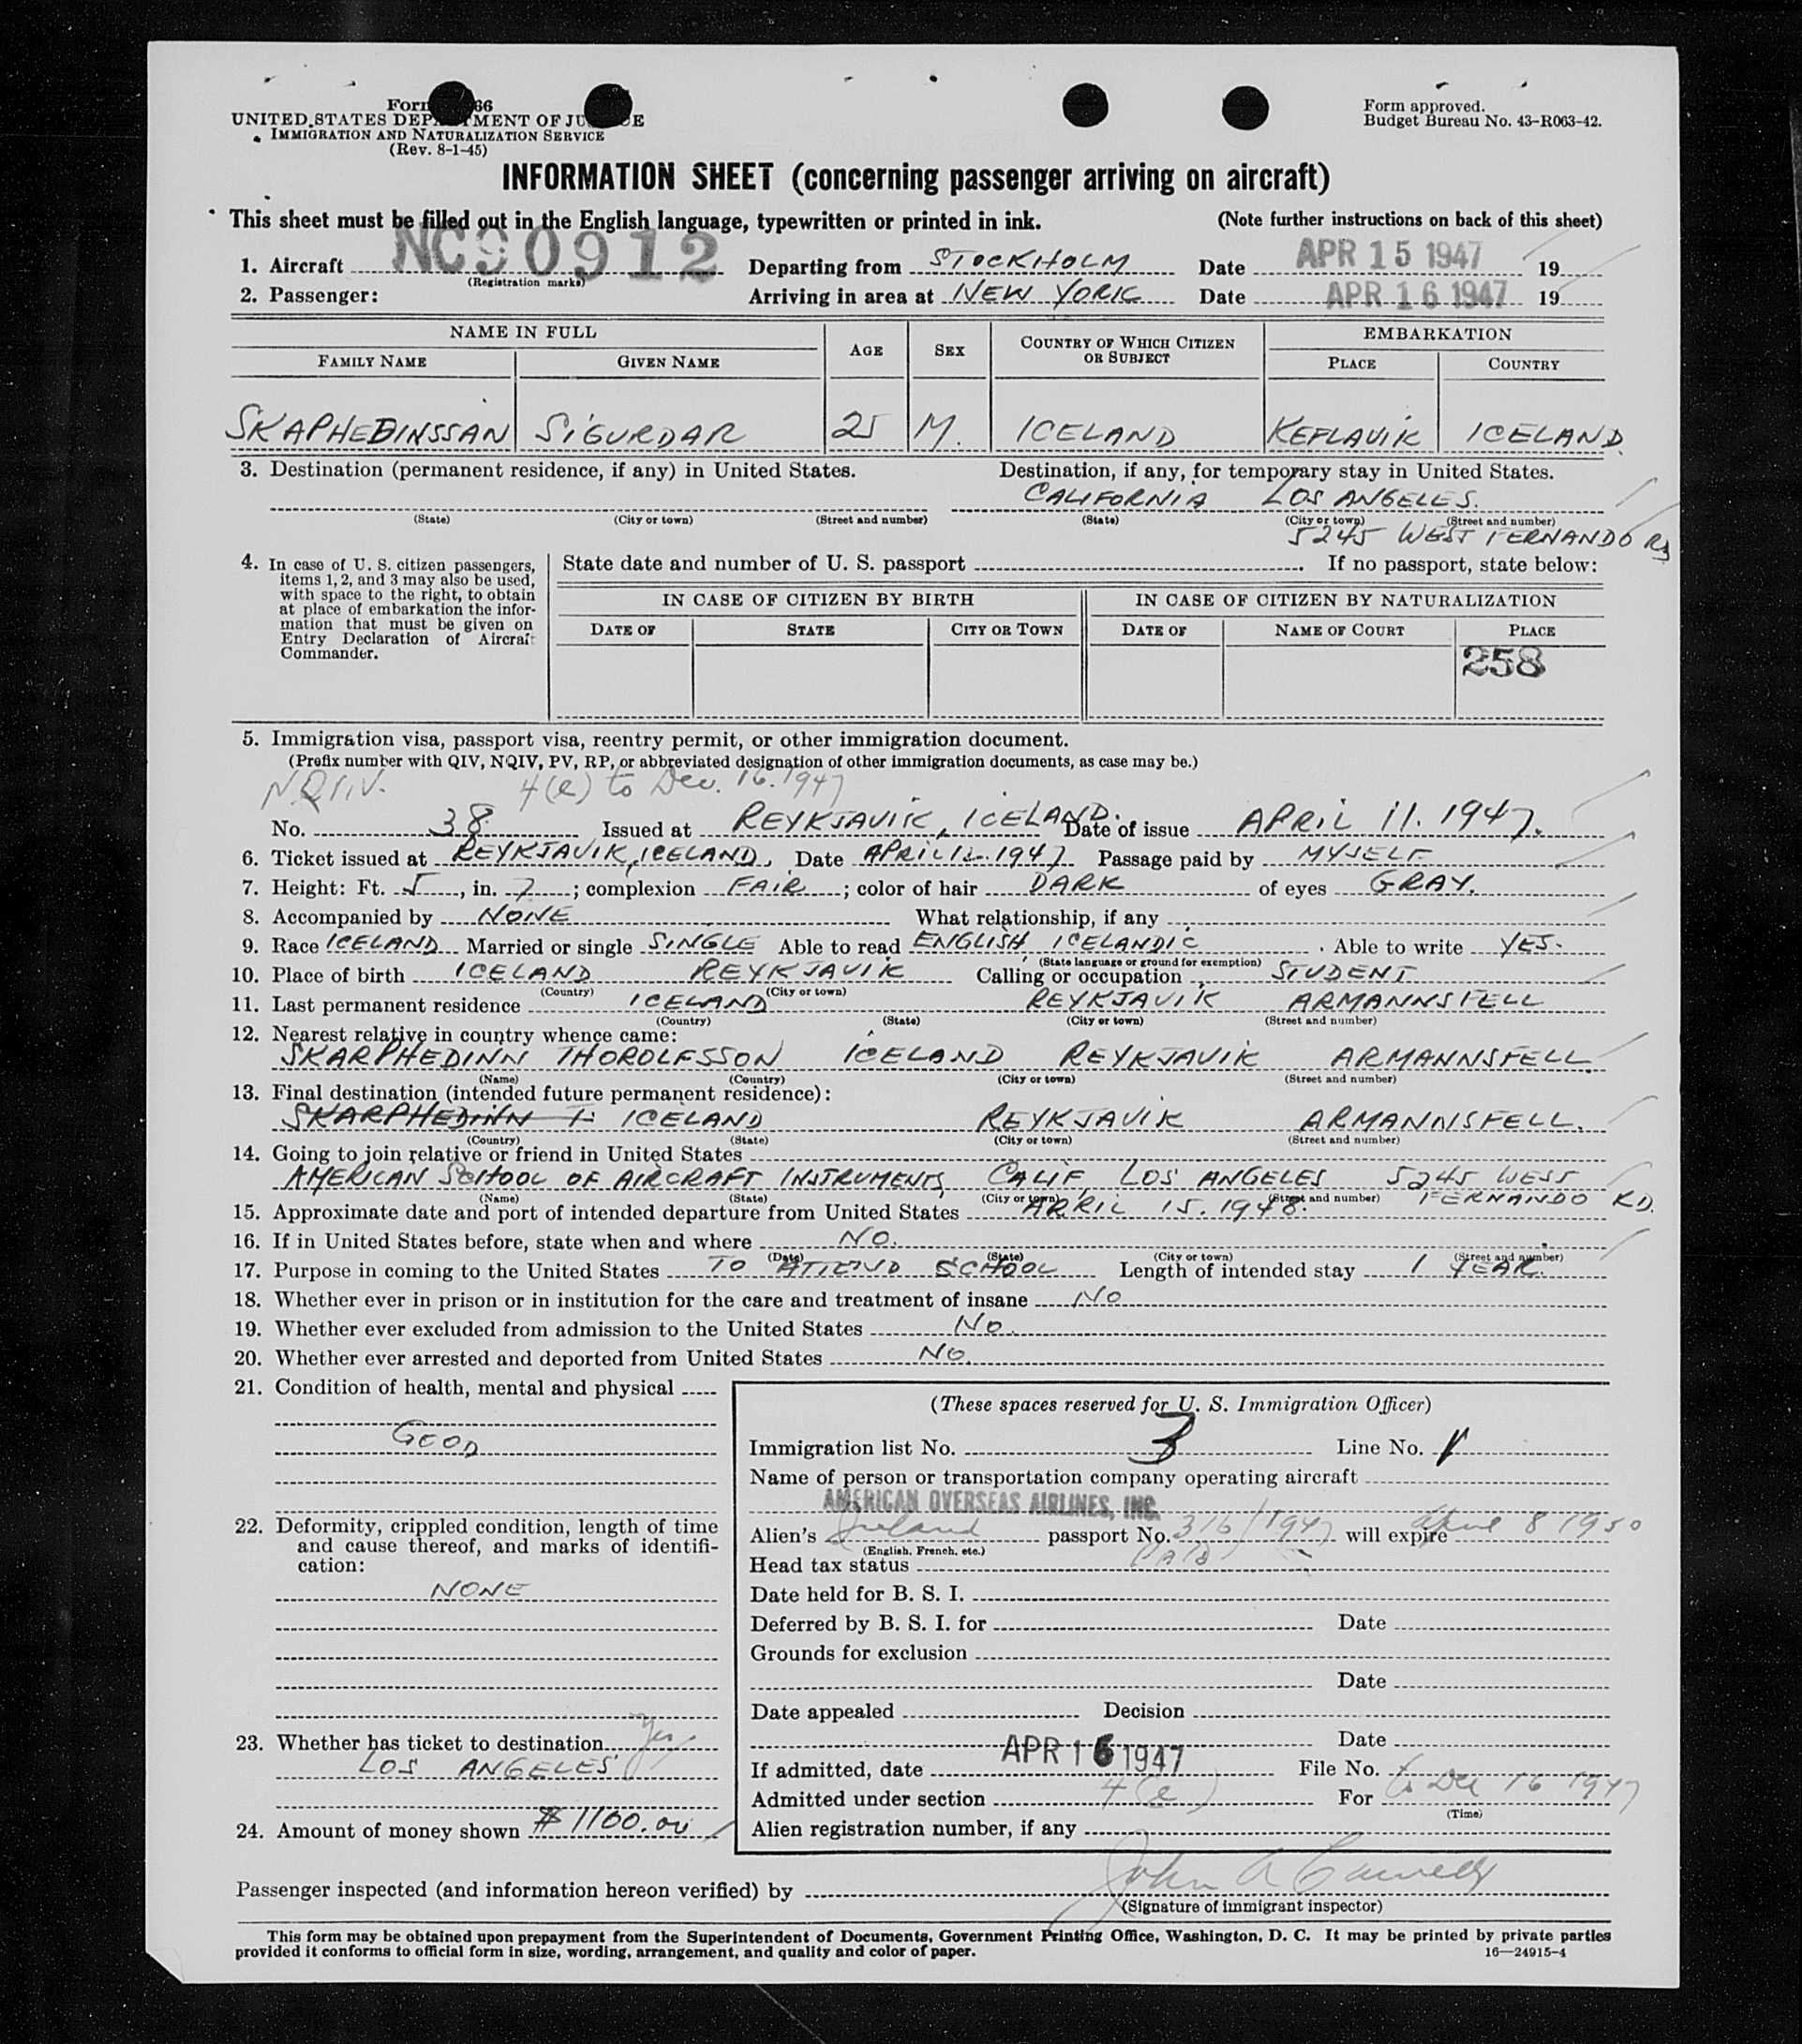 UNITED STATES DEPARTMENT OF JUSTICE
IMMIGRATION AND NATURALIZATION SERVICE
(Rev. 8-1-45)
Form approved.
Budget Bureau No. 43-R063-42.
INFORMATION SHEET (concerning passenger arriving on aircraft)
This sheet must be filled out in the English language, typewritten or printed in ink. (Note further instructions on back of this sheet)
1. Aircraft NC90912 Departing from STOCKHOLM Date APR 15 1947 19
(Registration marks)
2. Passenger: Arriving in area at NEW YORK Date APR 16 1947 19
NAME IN FULL AGE SEX COUNTRY OF WHICH CITIZEN OR SUBJECT EMBARKATION
FAMILY NAME GIVEN NAME PLACE COUNTRY
SKAPHEDINSSAN SIGURDAR 25 M. ICELAND KEFLAVIK ICELAND.
3. Destination (permanent residence, if any) in United States. Destination, if any, for temporary stay in United States.
CALIFORNIA LOS ANGELES.
(State) (City or town) (Street and number) (State) (City or town) (Street and number)
5245 WEST FERNANDO Rd
4. In case of U. S. citizen passengers, items 1, 2, and 3 may also be used, with space to the right, to obtain at place of embarkation the information that must be given on Entry Declaration of Aircraft Commander.
State date and number of U. S. passport . If no passport, state below:
IN CASE OF CITIZEN BY BIRTH IN CASE OF CITIZEN BY NATURALIZATION
DATE OF STATE CITY OR TOWN DATE OF NAME OF COURT PLACE
258
5. Immigration visa, passport visa, reentry permit, or other immigration document.
(Prefix number with QIV, NQIV, PV, RP, or abbreviated designation of other immigration documents, as case may be.)
N.Q.I.V. 4(e) to Dec. 16. 1947
No. 38 Issued at REYKJAVIK, ICELAND. Date of issue APRIL 11. 1947.
6. Ticket issued at REYKJAVIK, ICELAND, Date APRIL 12. 1947 Passage paid by MYSELF
7. Height: Ft. 5, in. 7; complexion FAIR; color of hair DARK of eyes GRAY.
8. Accompanied by NONE What relationship, if any
9. Race ICELAND Married or single SINGLE Able to read ENGLISH, ICELANDIC. Able to write YES.
(State language or ground for exemption)
10. Place of birth ICELAND REYKJAVIK Calling or occupation STUDENT
(Country) (City or town)
11. Last permanent residence ICELAND REYKJAVIK ARMANNSFELL
(Country) (State) (City or town) (Street and number)
12. Nearest relative in country whence came:
SKARPHEDINN THOROLFSSON ICELAND REYKJAVIK ARMANNSFELL
(Name) (Country) (City or town) (Street and number)
13. Final destination (intended future permanent residence):
SKARPHEDINN T. ICELAND REYKJAVIK ARMANNSFELL.
(Country) (State) (City or town) (Street and number)
14. Going to join relative or friend in United States
AMERICAN SCHOOL OF AIRCRAFT INSTRUMENTS CALIF. LOS ANGELES 5245 WEST
(Name) (State) (City or town) (Street and number) FERNANDO RD.
15. Approximate date and port of intended departure from United States APRIL 15. 1948.
16. If in United States before, state when and where NO.
(Date) (State) (City or town) (Street and number)
17. Purpose in coming to the United States TO ATTEND SCHOOL Length of intended stay 1 YEAR.
18. Whether ever in prison or in institution for the care and treatment of insane NO
19. Whether ever excluded from admission to the United States NO.
20. Whether ever arrested and deported from United States NO.
21. Condition of health, mental and physical
GOOD
22. Deformity, crippled condition, length of time and cause thereof, and marks of identification:
NONE
23. Whether has ticket to destination Yes
LOS ANGELES
24. Amount of money shown $1100.00
(These spaces reserved for U. S. Immigration Officer)
Immigration list No. 3 Line No. 1
Name of person or transportation company operating aircraft
AMERICAN OVERSEAS AIRLINES, INC.
Alien's passport No. 316/1947 will expire April 8 1950
(English, French, etc.)
Head tax status Paid
Date held for B. S. I.
Deferred by B. S. I. for Date
Grounds for exclusion
Date
Date appealed Decision
Date
If admitted, date APR 16 1947 File No.
Admitted under section 4(e) For to Dec 16 1947
(Time)
Alien registration number, if any
Passenger inspected (and information hereon verified) by John A
(Signature of immigrant inspector)
This form may be obtained upon prepayment from the Superintendent of Documents, Government Printing Office, Washington, D. C. It may be printed by private parties
provided it conforms to official form in size, wording, arrangement, and quality and color of paper. 16—24915-4